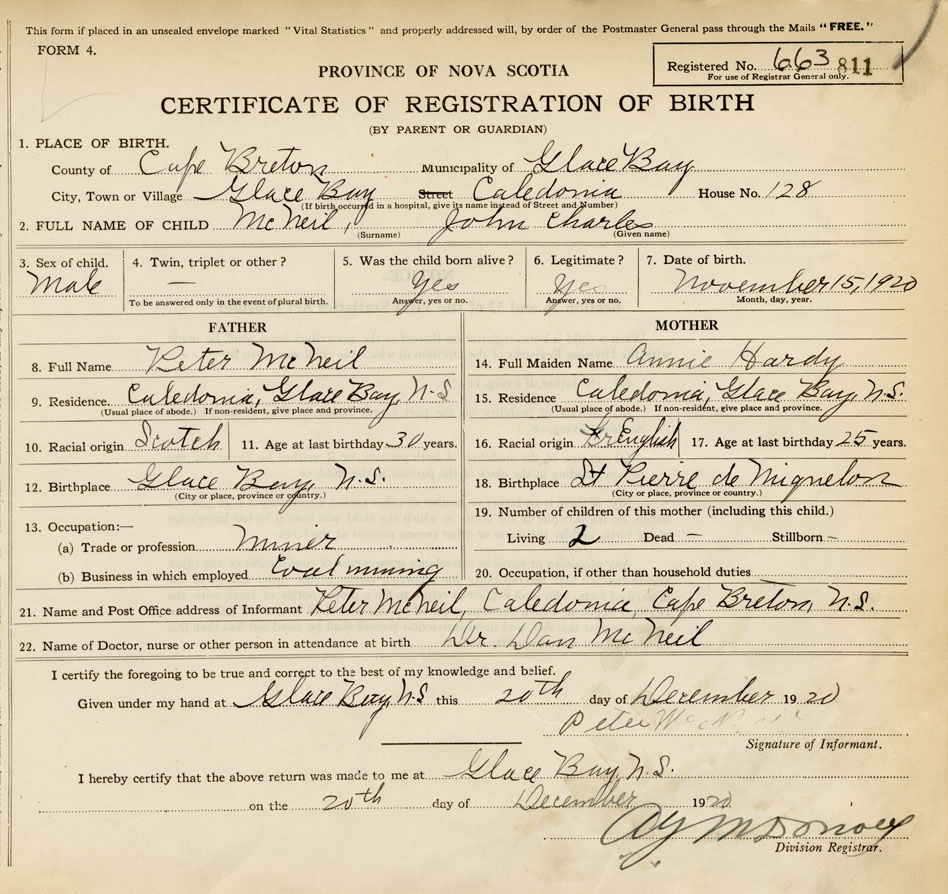 This form if placed in an unsealed envelope marked "Vital Statistics" and properly addressed will, by order of the Postmaster General pass through the Mails "FREE."
FORM 4.
Registered No. 663 811
For use of Registrar General only.
PROVINCE OF NOVA SCOTIA
CERTIFICATE OF REGISTRATION OF BIRTH
(BY PARENT OR GUARDIAN)
1. PLACE OF BIRTH.
County of Cape Breton Municipality of Glace Bay
City, Town or Village Glace Bay Street Caledonia House No. 128
(If birth occurred in a hospital, give its name instead of Street and Number)
2. FULL NAME OF CHILD McNeil, John Charles
(Surname) (Given name)
3. Sex of child. 4. Twin, triplet or other? 5. Was the child born alive? 6. Legitimate? 7. Date of birth.
Male — Yes Yes November 15, 1920
To be answered only in the event of plural birth. Answer, yes or no. Answer, yes or no. Month, day, year.
FATHER
8. Full Name Peter McNeil
9. Residence Caledonia, Glace Bay, N.S
(Usual place of abode.) If non-resident, give place and province.
10. Racial origin Scotch 11. Age at last birthday 30 years.
12. Birthplace Glace Bay, N.S.
(City or place, province or country.)
13. Occupation:—
(a) Trade or profession Miner
(b) Business in which employed Coal mining
MOTHER
14. Full Maiden Name Annie Hardy
15. Residence Caledonia, Glace Bay, N.S.
(Usual place of abode.) If non-resident, give place and province.
16. Racial origin English 17. Age at last birthday 25 years.
18. Birthplace St Pierre de Miquelon
(City or place, province or country.)
19. Number of children of this mother (including this child.)
Living 2 Dead — Stillborn —
20. Occupation, if other than household duties
21. Name and Post Office address of Informant Peter McNeil, Caledonia, Cape Breton, N.S.
22. Name of Doctor, nurse or other person in attendance at birth Dr. Dan McNeil
I certify the foregoing to be true and correct to the best of my knowledge and belief.
Given under my hand at Glace Bay N.S this 20th day of December 1920
Peter
Signature of Informant.
I hereby certify that the above return was made to me at Glace Bay, N.S.
on the 20th day of December 1920
Division Registrar.